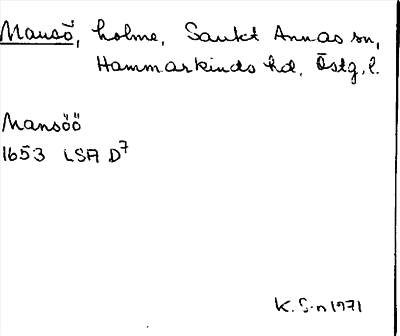 Mansö, holme, Sankt Annas sn,
Hammarkinds hd, Östg. l.
Mansöö
1653 LSA D7
K. S-n 1971